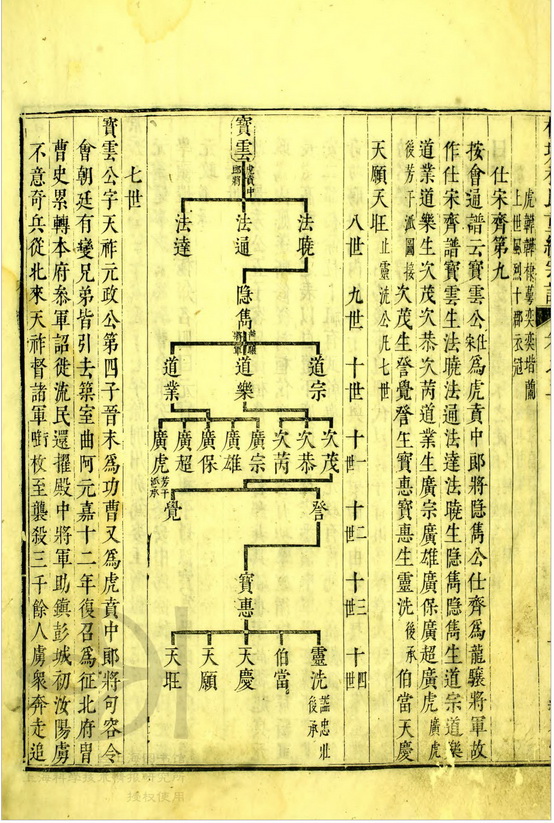 虎賁韡棣萼奕奕堦蘭
上世風烈十郡衣冠
仕宋齊第九
按會通譜云寶雲公仕宋爲虎賁中郎將隱雋公仕齊爲龍驤將軍故
作仕宋齊譜寶雲生法曉法通法達法曉生隱雋隱雋生道宗道樂
道業道樂生次茂次恭次芮道業生廣宗廣雄廣保廣超廣虎廣虎
後芳干派圖接次茂生詧覺詧生寶惠寶惠生靈洗後承伯當天慶
天願天旺止靈洗公凡七世
八世 九世 十世 十一世 十二世 十三世 十四世
寶雲虎賁中郎將
法曉 法通 法達
隱雋龍驤將軍
道宗 道樂 道業
次茂 次恭 次芮 廣宗 廣雄 廣保 廣超 廣虎芳干派承
詧 覺
寶惠
靈洗謚忠壯後承 伯當 天慶 天願 天旺
七世
寶雲公字天祚元政公第四子晉末爲功曹又爲虎賁中郎將句容令
會朝廷有變兄弟皆引去築室曲阿元嘉十二年復召爲征北府冑
曹史累轉本府叅軍詔從流民還擢殿中將軍助鎮彭城初汝陽虜
不意奇兵從北來天祚督諸軍啣枚至襲殺三千餘人虜衆奔走追